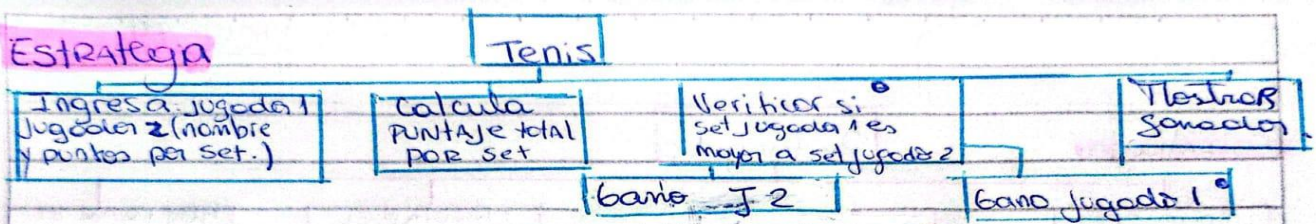 EStRAtegia
Tenis
Ingresa jugador 1
jugador 2 (nombre
y puntos por set.)
calcula
PUNTAJE total
POR set
Verificar si
set jugador 1 es
mayor a set jugador 2
MostraR
ganador.
Gano J2
Gano jugador 1